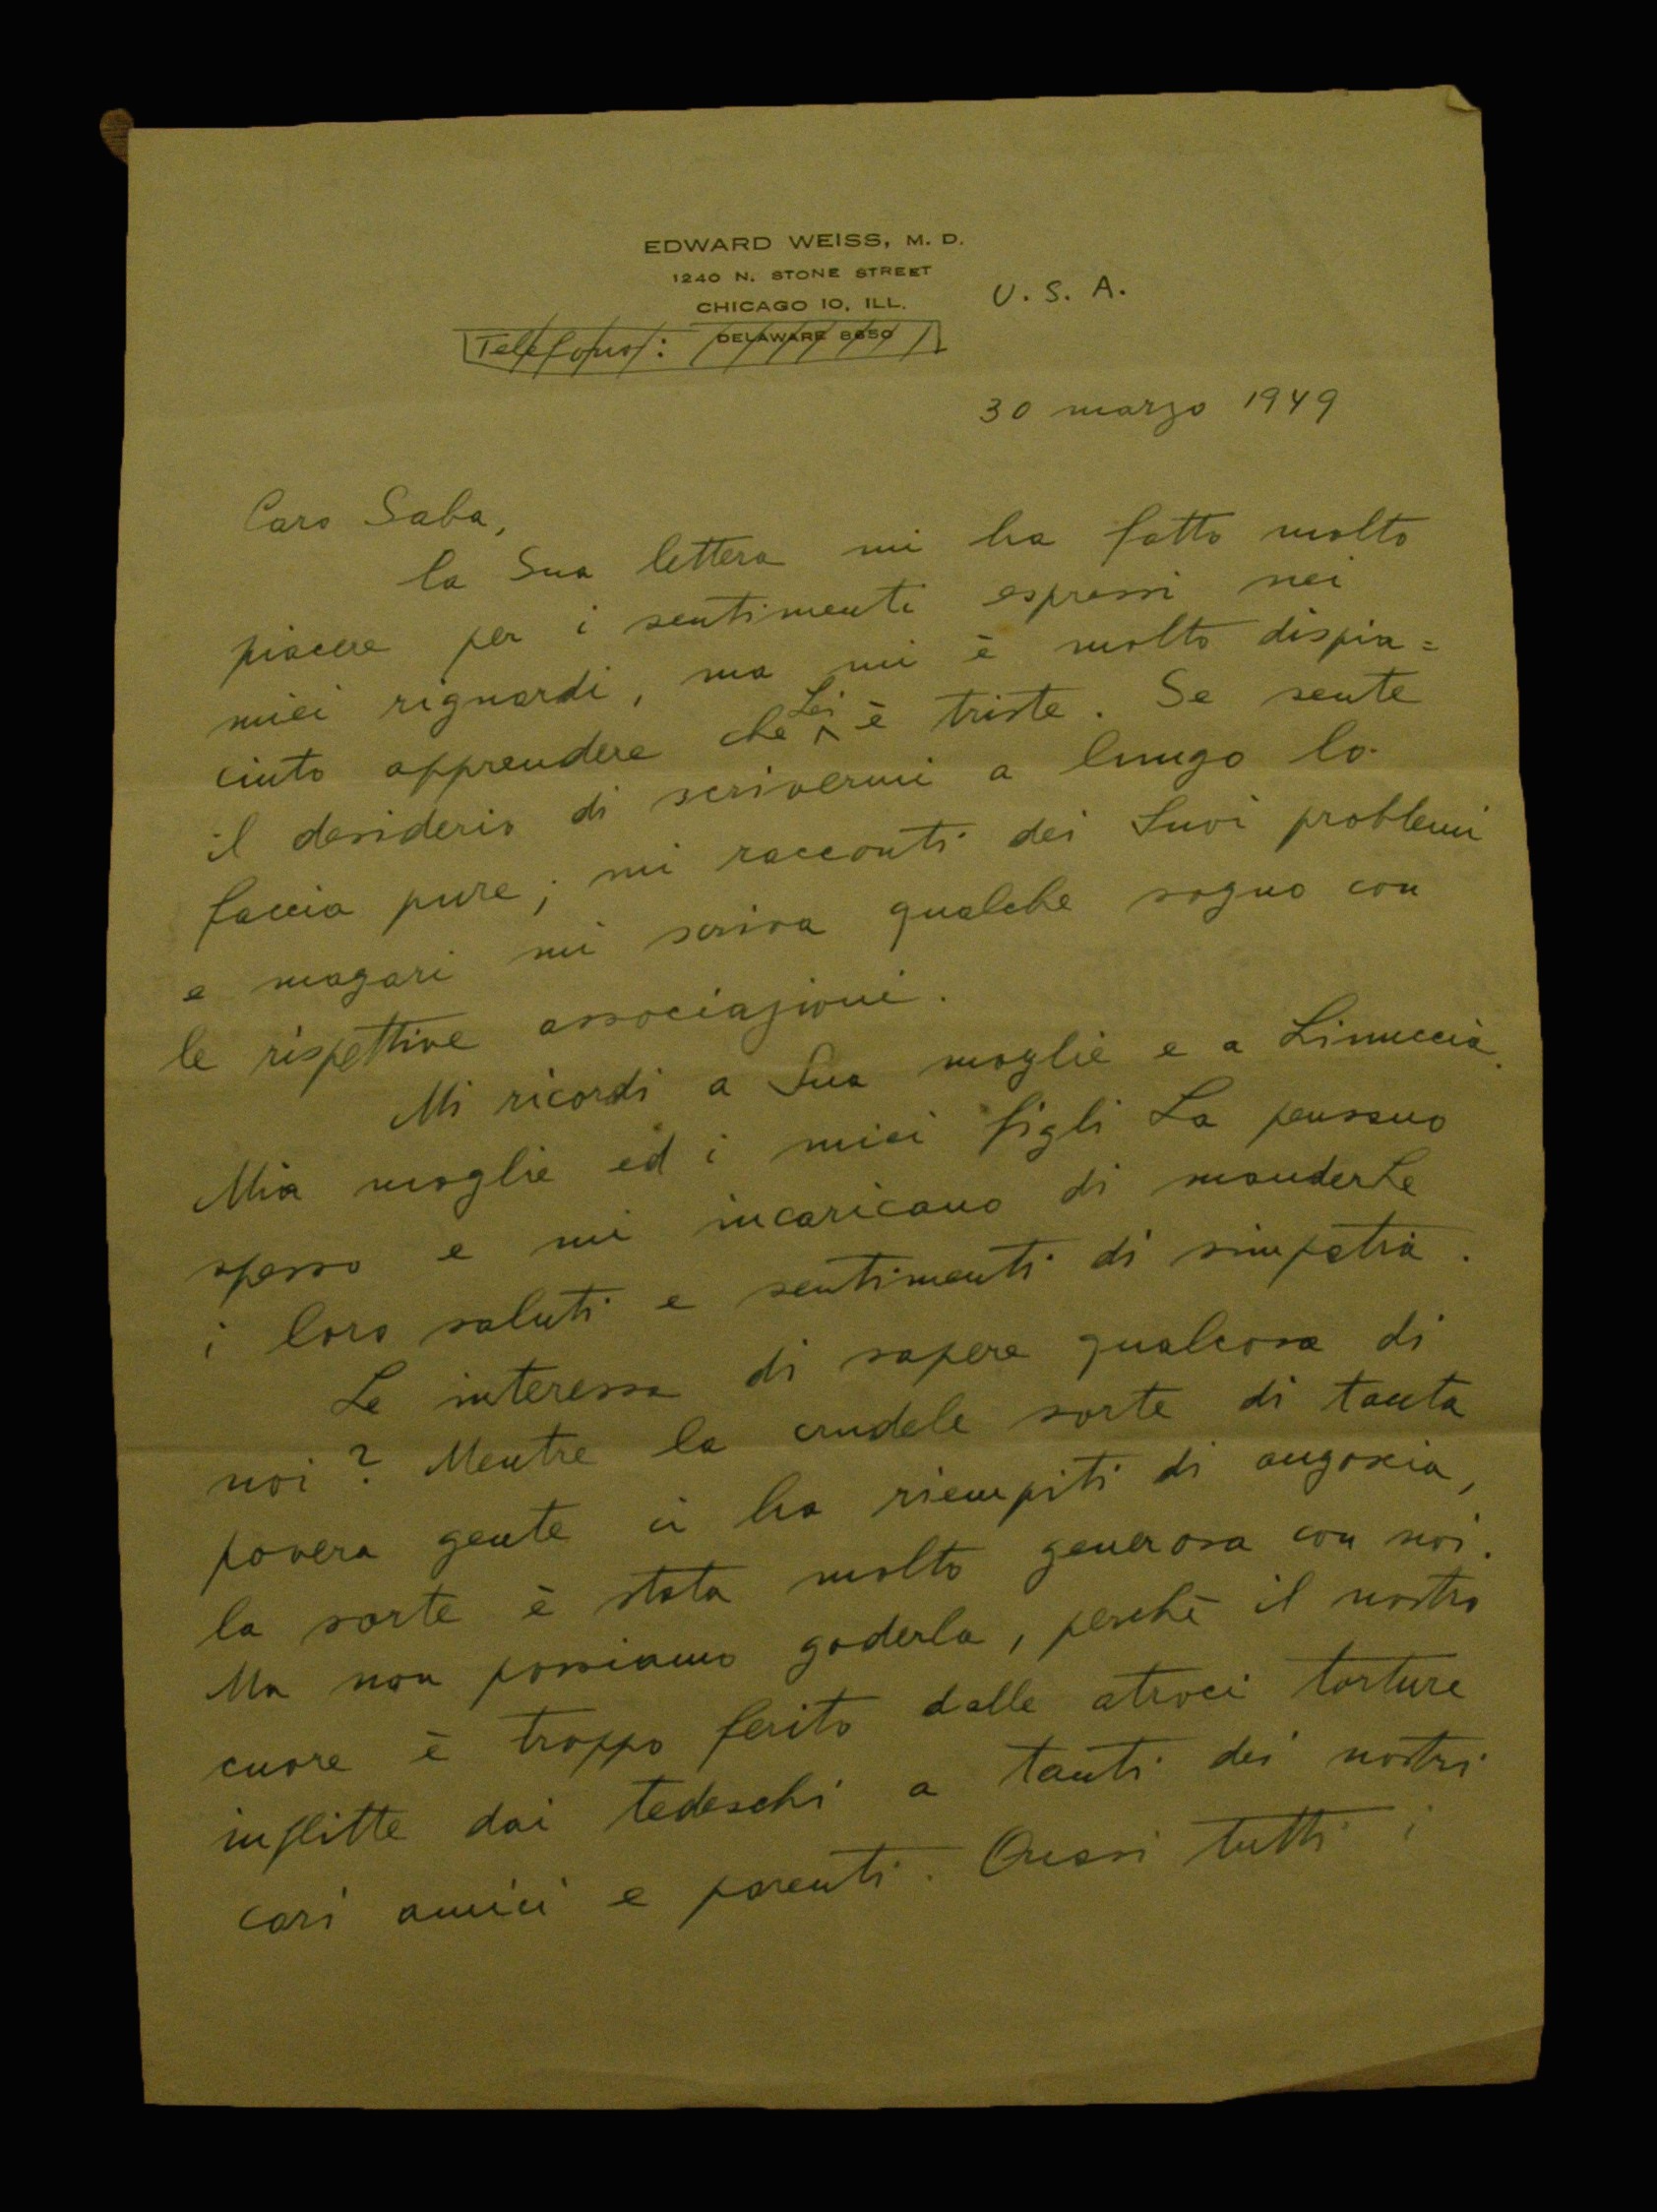 EDWARD WEISS, M. D.
1240 N. STONE STREET
CHICAGO 10, ILL. U. S. A.
Telefono: DELAWARE 8650
30 marzo 1949
Caro Saba,
la Sua lettera mi ha fatto molto
piacere per i sentimenti espressi nei
miei riguardi, ma mi è molto dispia=
ciuto apprendere che Lei è triste. Se sente
il desiderio di scrivermi a lungo lo
faccia pure; mi racconti dei Suoi problemi
e magari mi scriva qualche sogno con
le rispettive associazioni.
Mi ricordi a Sua moglie e a Linuccia.
Mia moglie ed i miei figli La pensano
spesso e mi incaricano di mandarLe
i loro saluti e sentimenti di simpatia.
Le interessa di sapere qualcosa di
noi? Mentre la crudele sorte di tanta
povera gente ci ha riempiti di angoscia,
la sorte è stata molto generosa con noi.
Ma non possiamo goderla, perchè il nostro
cuore è troppo ferito dalle atroci torture
inflitte dai tedeschi a tanti dei nostri
cari amici e parenti. Quasi tutti i